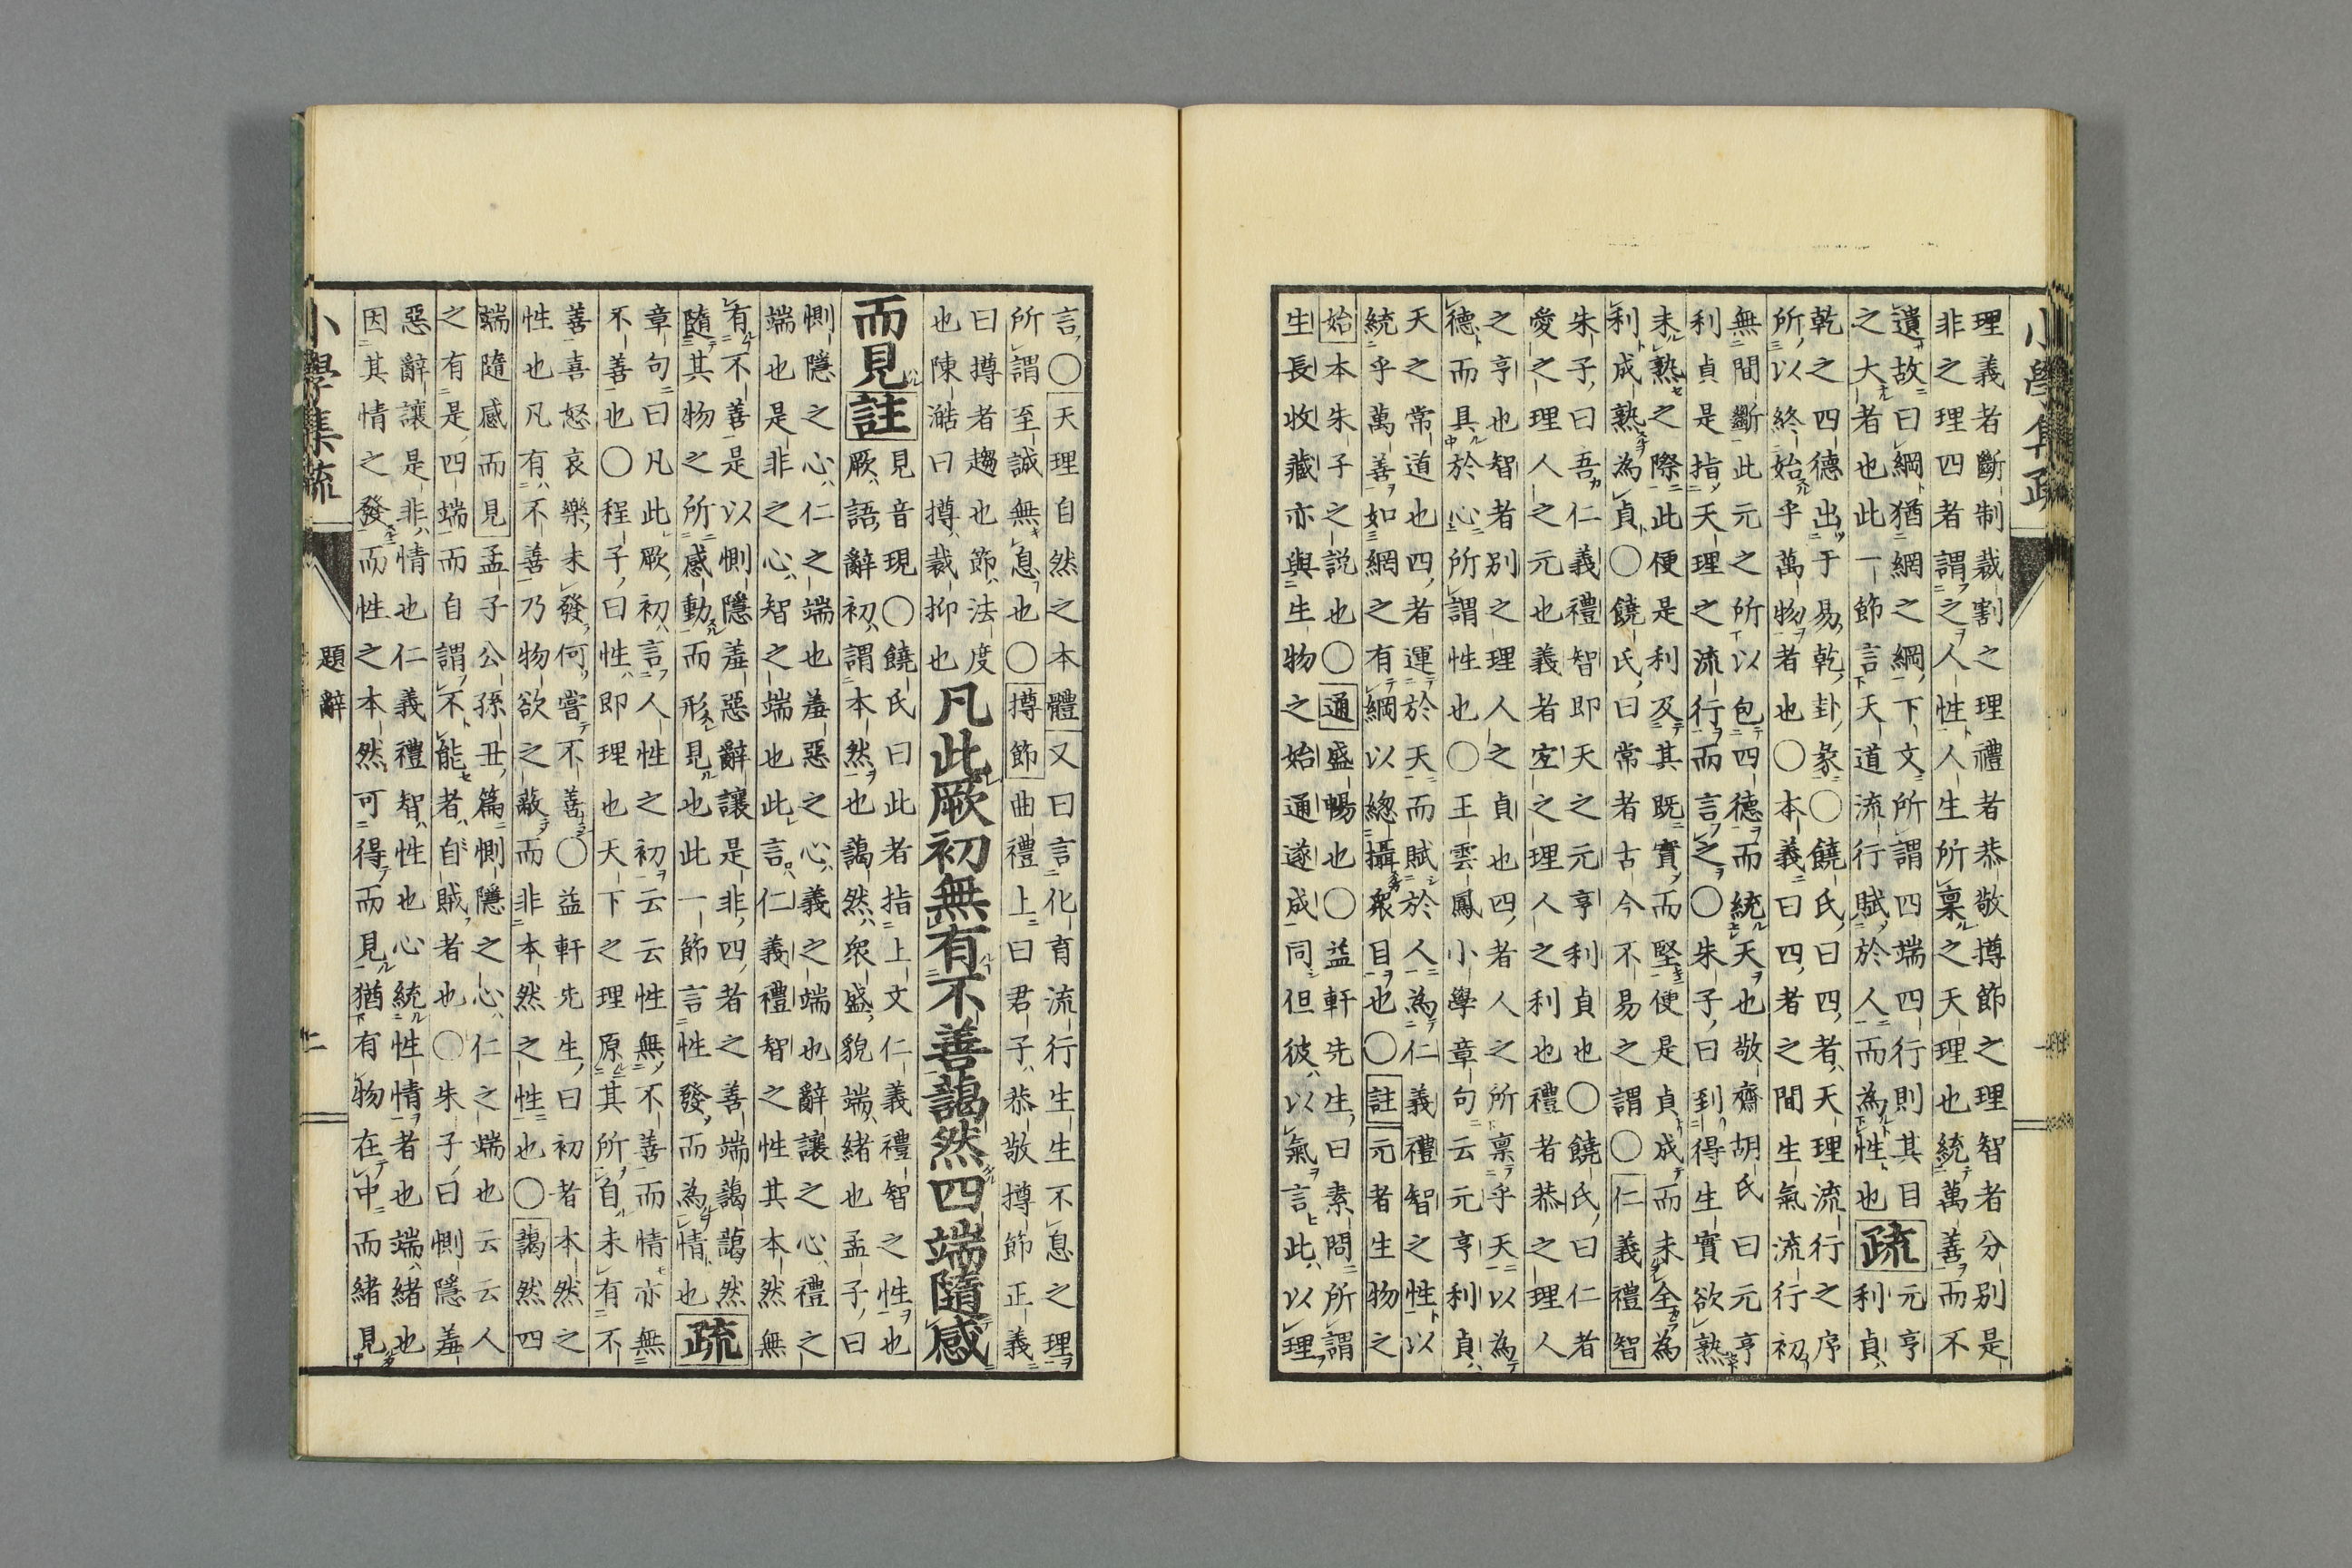 理義者斷制裁割之理禮者恭敬撙節之理智者分別是
非之理四者謂之人性人生所稟之天理也統萬善而不
遺故曰綱猶網之綱下文所謂四端四行則其目
之大者也此一節言天道流行賦於人而為性也疏利貞元亨
乾之四德出于易乾卦彖○饒氏曰四者天理流行之序
所以終始乎萬物者也○本義曰四者之間生氣流行初
無間斷此元之所以包四德而統天也敬齋胡氏曰元亨
利貞是指天理之流行而言之○朱子曰到得生實欲熟
未熟之際此便是利及其既實而堅便是貞成而未全為
利成熟為貞○饒氏曰常者古今不易之謂○仁義禮智
朱子曰吾仁義禮智即天之元亨利貞也○饒氏曰仁者
愛之理人之元也義者宜之理人之利也禮者恭之理人
之亨也智者別之理人之貞也四者人之所稟乎天以為
德而具於心所謂性也○王雲鳳小學章句云元亨利貞
天之常道也四者運於天而賦於人為仁義禮智之性以
統乎萬善如網之有綱以緫攝衆目也○註元者生物之
始本朱子之説也○通盛暢也○益軒先生曰素問所謂
生長收藏亦與生物之始通遂成同但彼以氣言此以理
小學集疏
言○天理自然之本體又曰言化育流行生生不息之理
所謂至誠無息也○撙節曲禮上曰君子恭敬撙節正義
曰撙者趨也節法度
也陳澔曰撙裁抑也
凡此厥初無有不善藹然四端隨感
而見註
見音現○饒氏曰此者指上文仁義禮智之性也
厥語辭初謂本然也藹然衆盛貌端緒也孟子曰
惻隱之心仁之端也羞惡之心義之端也辭讓之心禮之
端也是非之心智之端也此言仁義禮智之性其本然無
有不善是以惻隱羞惡辭讓是非四者之善端藹藹然
隨其物之所感動而形見也此一節言性發而為情也疏
章句曰凡此厥初言人性之初云云性無不善而情亦無
不善也○程子曰性即理也天下之理原其所自未有不
善喜怒哀樂未發何嘗不善○益軒先生曰初者本然之
性也凡有不善乃物欲之蔽而非本然之性也○藹然四
端隨感而見孟子公孫丑篇惻隱之心仁之端也云云人
之有是四端而自謂不能者自賊者也○朱子曰惻隱羞
惡辭讓是非情也仁義禮智性也心統性情者也端緒也
因其情之發而性之本然可得而見猶有物在中而緒見
小學集疏 題辭